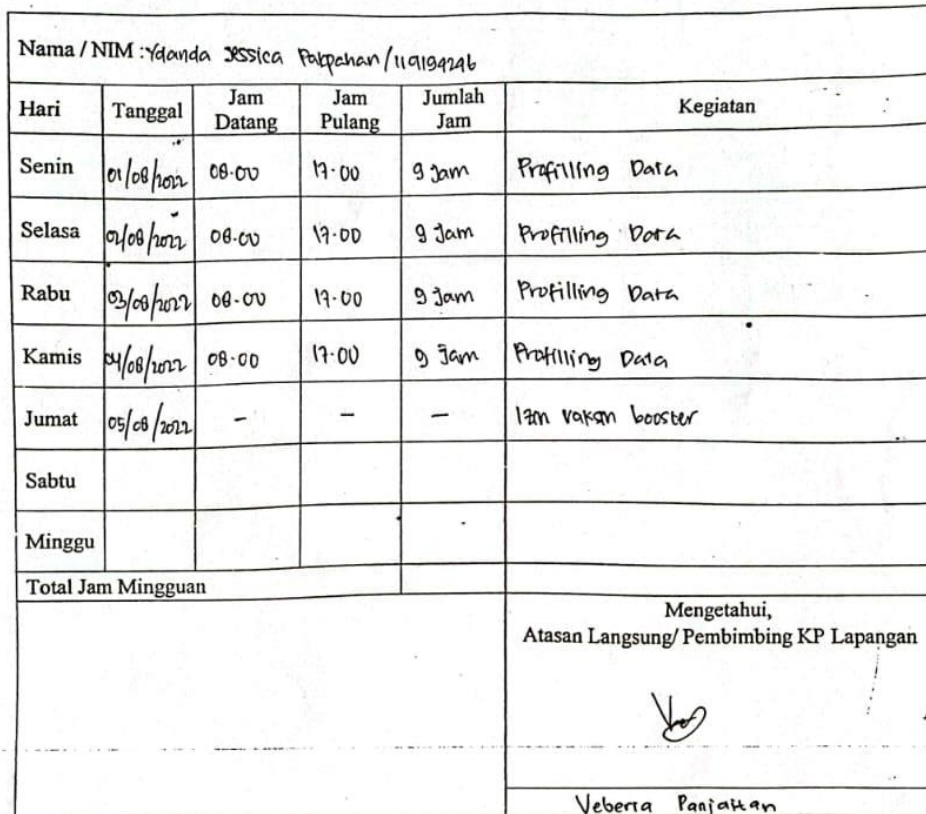 Nama / NIM : Yolanda Jessica Pakpahan / 119194246
Hari Tanggal Jam Datang Jam Pulang Jumlah Jam Kegiatan
Senin 01/08/2022 08.00 17.00 9 Jam Profilling Data
Selasa 02/08/2022 08.00 17.00 9 Jam Profilling Data
Rabu 03/08/2022 08.00 17.00 9 Jam Profilling Data
Kamis 04/08/2022 08.00 17.00 9 Jam Profilling Data
Jumat 05/08/2022 - - - Izin vaksin booster
Sabtu
Minggu
Total Jam Mingguan
Mengetahui,
Atasan Langsung/ Pembimbing KP Lapangan
Veberta Panjaitan